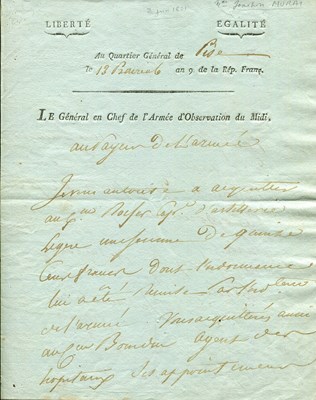 LIBERTÉ
EGALITÉ
Au Quartier Général de Pise
Le 13 Prairial an 9 de la Rép. Franç.
LE Général en Chef de l'Armée d'Observation du Midi,
au Payeur de l'armée
Je vous autorise à acquitter
au Gen
d'artillerie
Legere une somme de quinze
Cent francs dont l'ordonnance
lui a été remise par
de l'armé Vous acquitterés aussi
au Cen Bourdon agent des
hopitaux ses appointemens